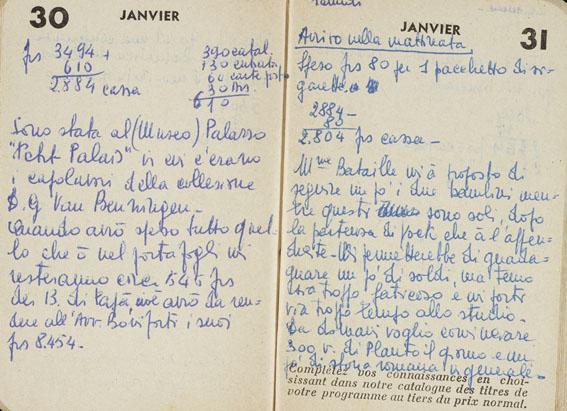 30 JANVIER
frs 3494 +
610
2884 cassa
390 catal.
130 entrata
60 carte post
30
610
Sono stata al (Museo) Palasso
"Petit Palais" vi cui c'erano
i capolavori della collezione
D. G Van Beuningen -
Quando avrò speso tutto quel-
lo che è nel portafogli mi
resteranno circa 545 frs
dei 13. di Papà, avrò da ren-
dere all'Avv. Boniforti i suoi
frs 8.454.
JANVIER 31
Arrivo nella mattinata
Speso frs 80 per 1 pacchetto di si-
garette
2884 -
80
2.804 frs cassa -
Mme Bataille mi à proposto di
seguire un pò i due bambini men-
tre questi sono soli, dopo
la partenza di
Mi permetterebbe di guada-
gnare un pò di soldi, ma temo
sia troppo faticoso e mi porti
via troppo tempo allo studio -
Da domani voglio cominciare
300 v. di Plauto il giorno e un
pò di storia romana in generale -
Complétez vos connaissances en choi-
sissant dans notre catalogue des titres de
votre programme au tiers du prix normal.